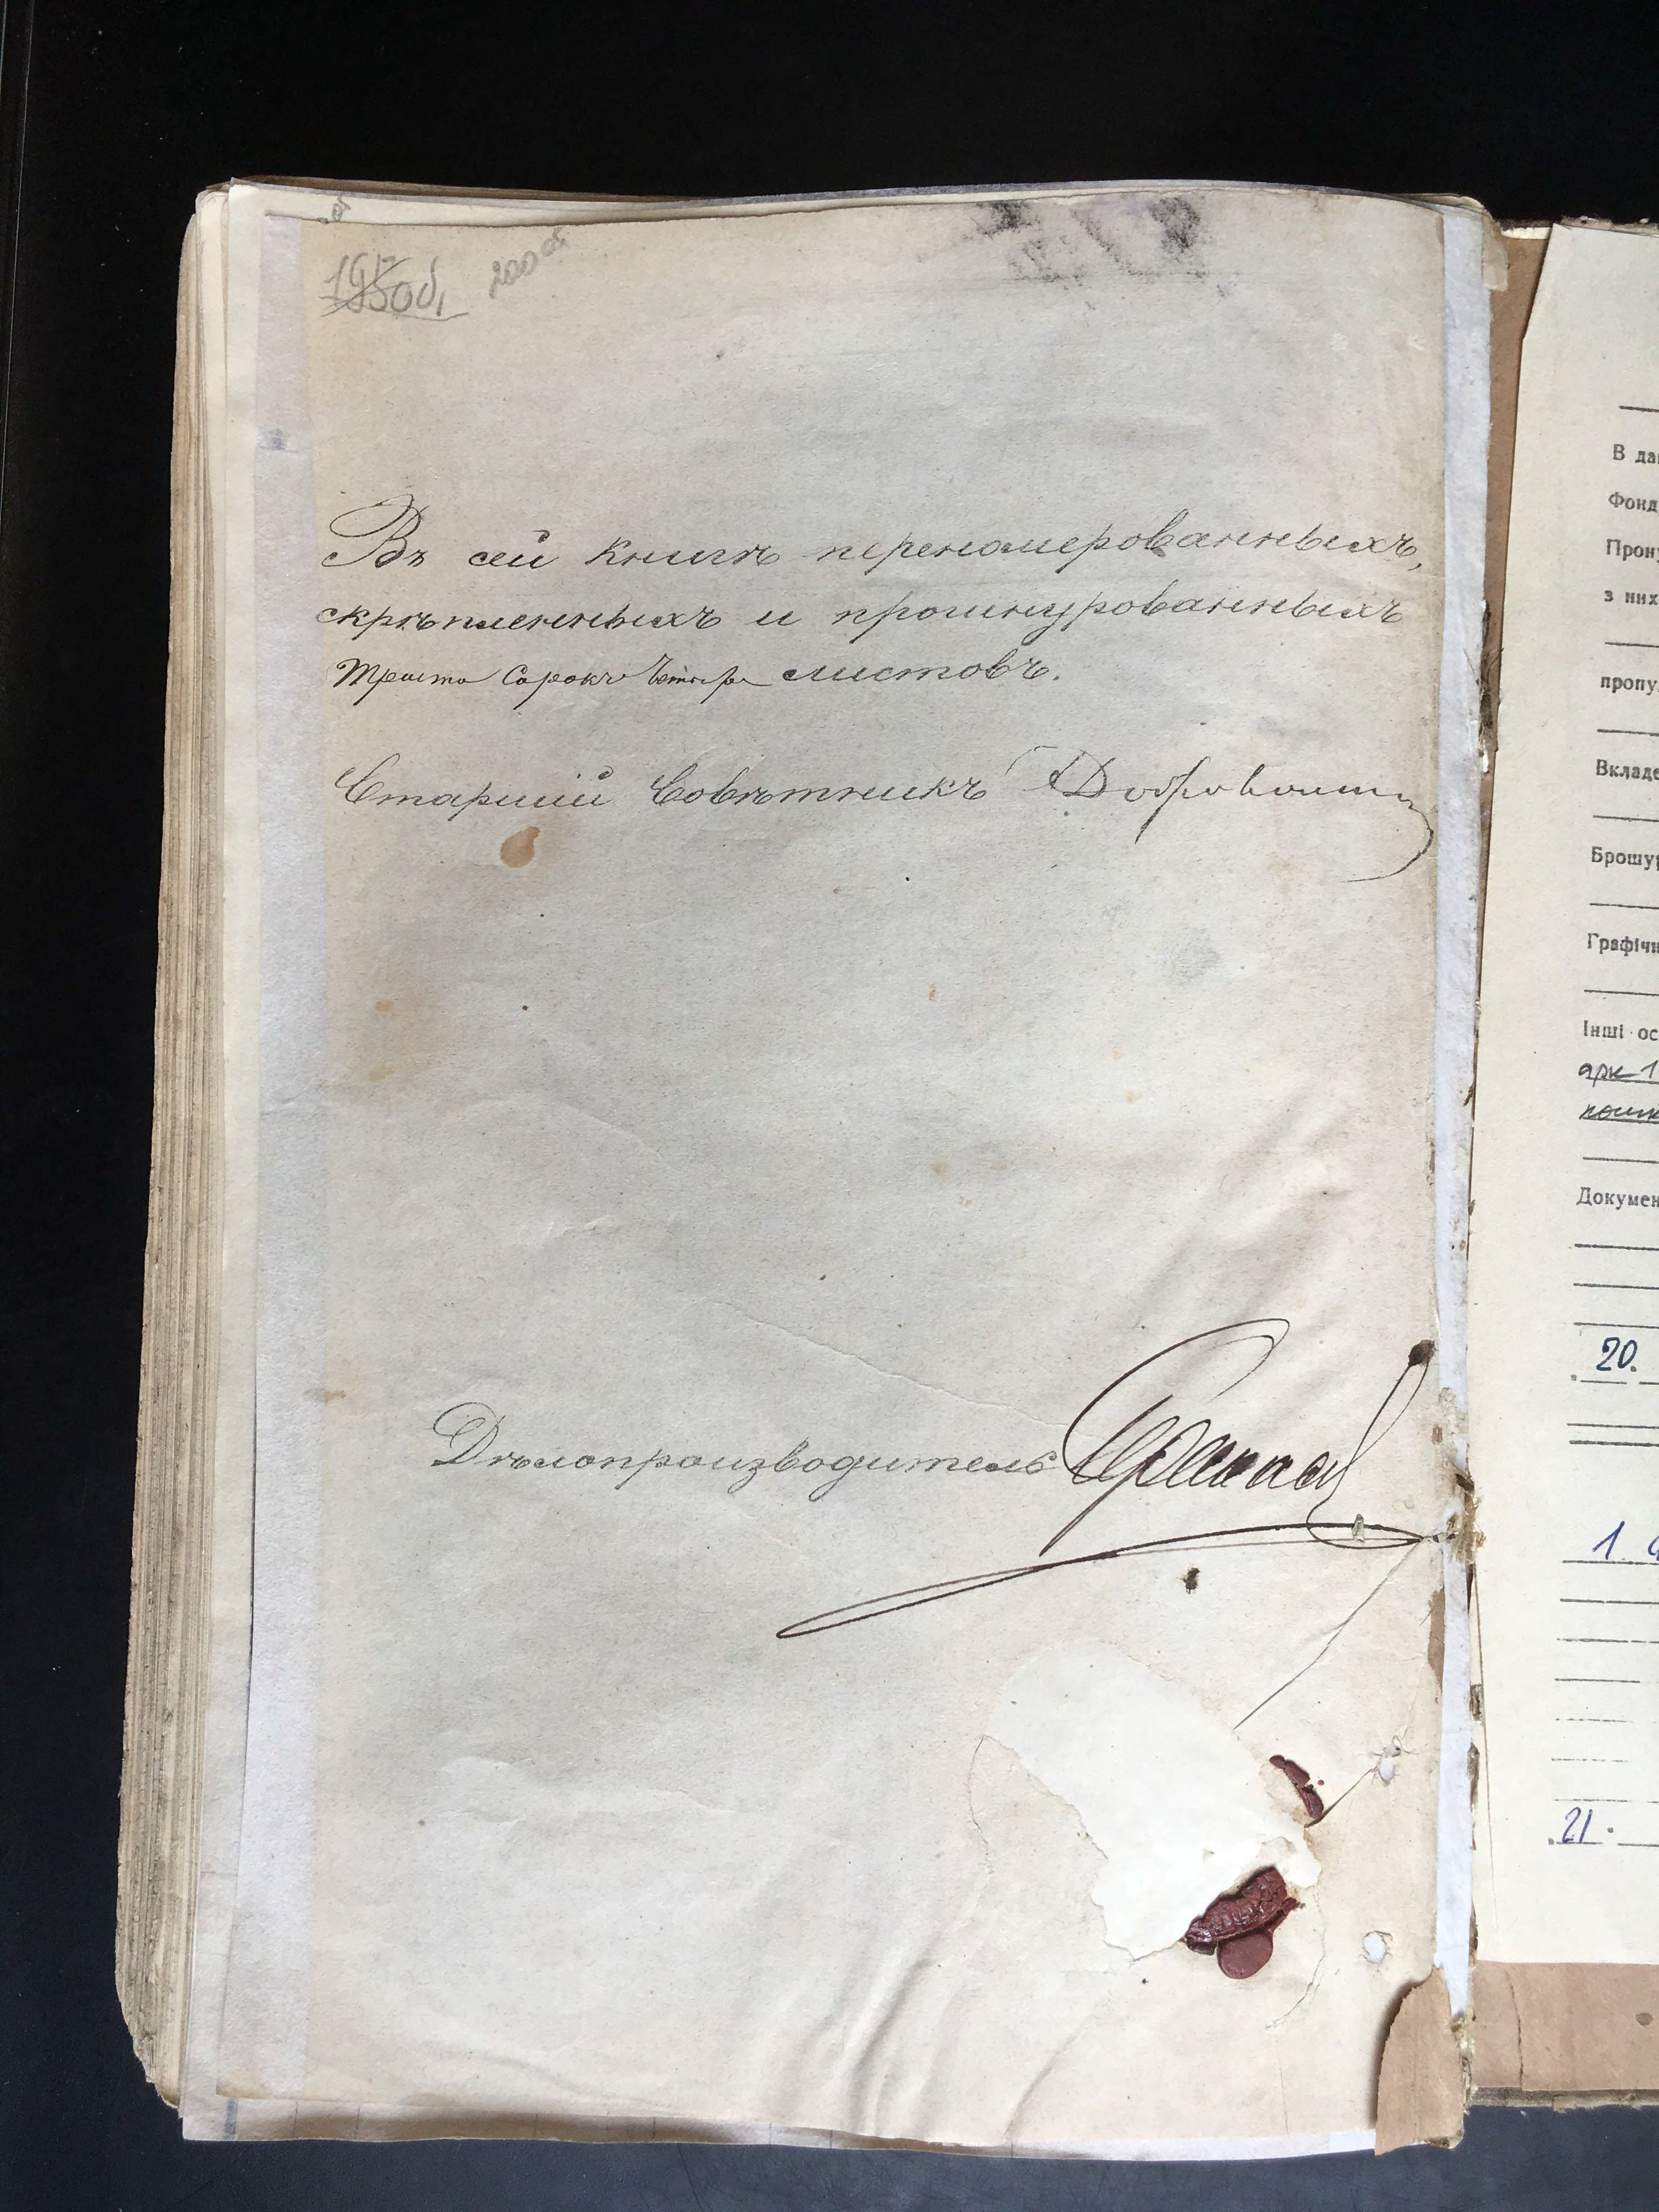 195об.
200об
Въ сей книгѣ переномерованныхъ,
скрѣпленныхъ и прошнурованныхъ
Триста Сорокъ Четыре листовъ.
Старшій Совѣтникъ
Дѣлопроизводитель
В да
Фонд
Прону
з них
пропу
Вкладе
Брошу
Графічн
Інші ос
арк 1
Докумен
20.
1
21.